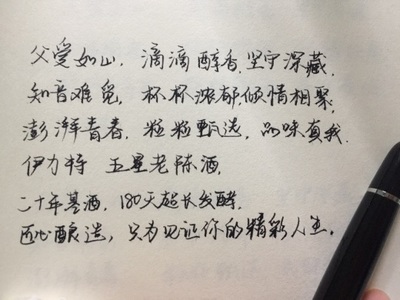 父爱如山，滴滴醇香，坚守深藏，
知音难觅，杯杯浓郁，倾情相聚，
澎湃青春，粒粒甄选，品味真我，
伊力特 五星老陈酒，
二十年基酒，180天超长发酵，
匠心酿造，只为见证你的精彩人生。